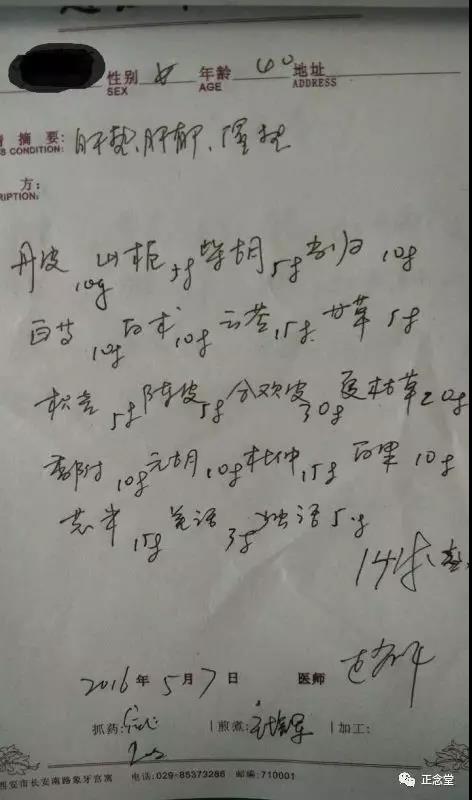 性别 女 年龄 40 地址
SEX AGE ADDRESS
摘要: 肝热、肝郁、湿热
S CONDITION:
方:
RIPTION:
丹皮 10g 山栀 5g 柴胡 5g 当归 10g
白芍 10g 白术 10g 云苓 15g 甘草 5g
枳壳 5g 陈皮 5g 合欢皮 30g 夏枯草 20g
香附 10g 元胡 10g 杜仲 15g 百果 10g
15g 羌活 3g 独活 5g
14付
2016 年 5 月 7 日 医师
抓药: 煎煮: 加工:
西安市长安南路象牙宫寓 电话:029-85373286 邮编:710001
正念堂